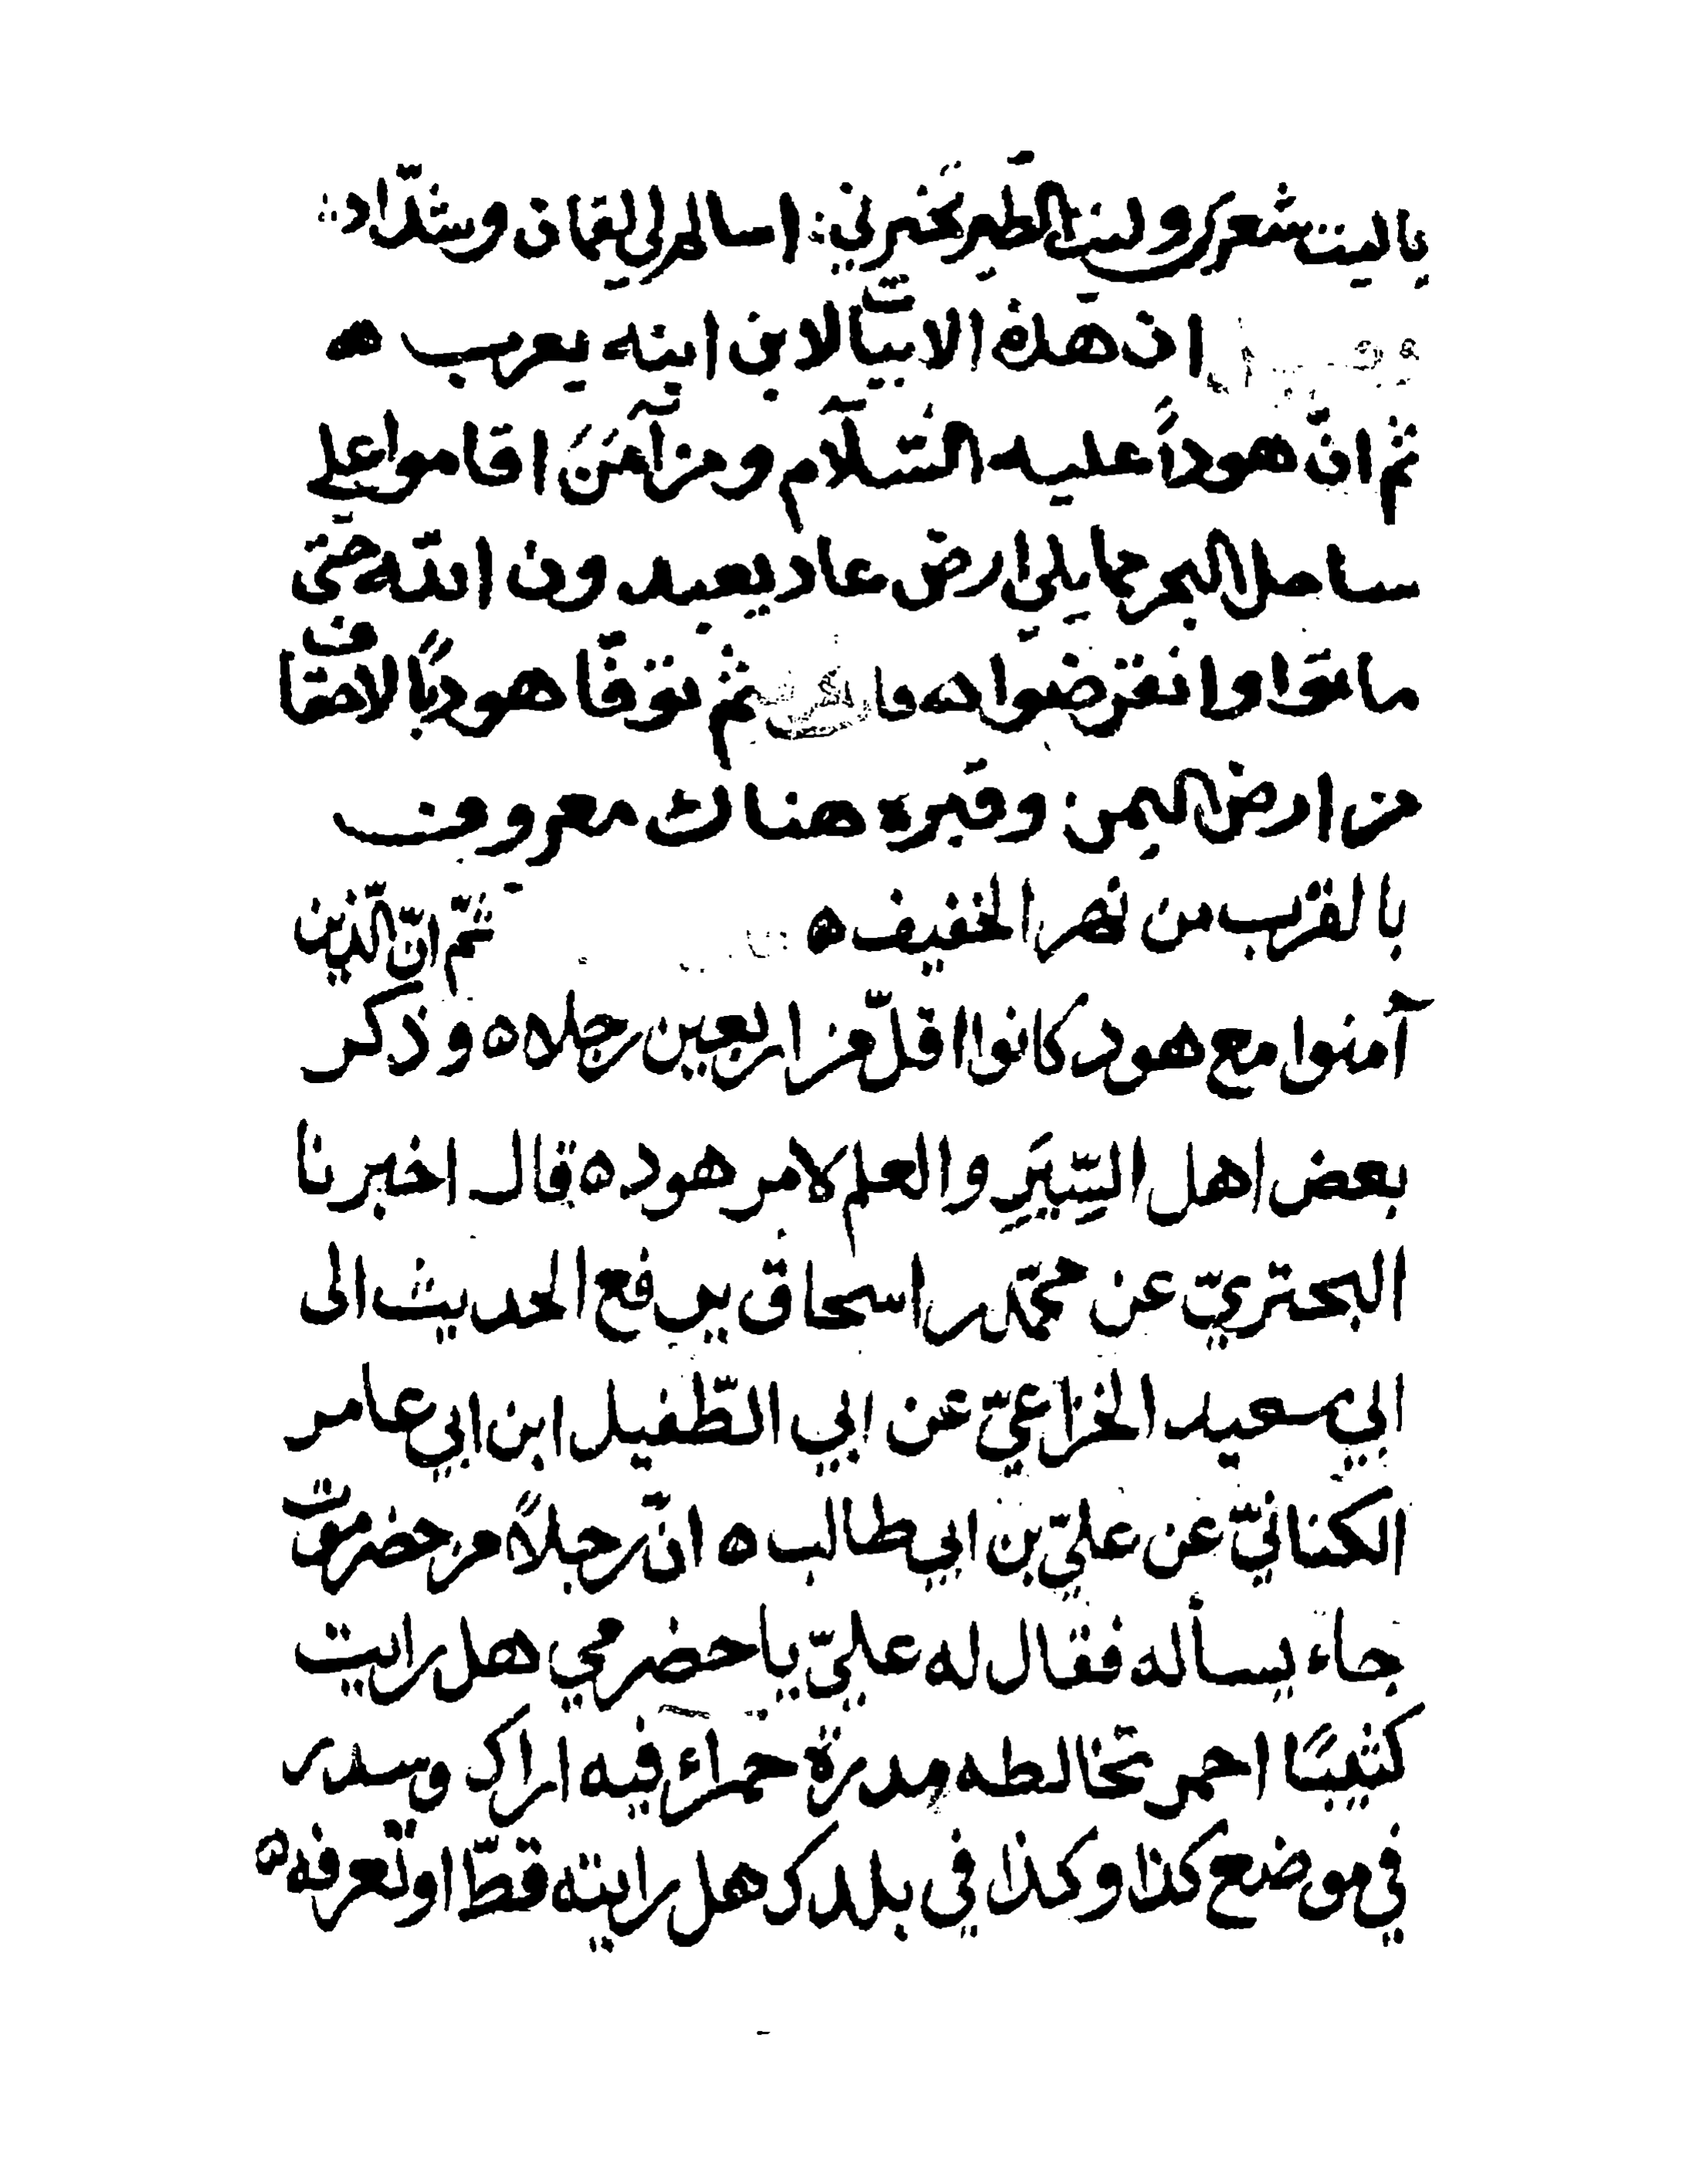 ياليت شعري وليت الطير تخبرني : اسالم لي لقمان وشدّاد
ان هذه الابيات لابن ابنه يعرب ه
ثم انّ هوداً عليه السّلام ومن آمَنَ اقاموا على
ساحل البحر مما يلي ارض عاد يعبدون الله حتّى
ماتوا وانقرضوا ه ثم توفّا هود بالاحقاف
من ارض اليمن وقبره هناك معروف
بالقرب من نهر الخفيف ه ثمّ انّ الّذين
آمنوا مع هود كانوا اقلّ من اربعين رجلا ه وذكر
بعض اهل السِّيَرِ والعلم لامر هود ه قال اخبرنا
البحتريّ عن محمّد بن اسحاق يرفع الحديث الى
ابي سعيد الخزاعيّ عن ابي الطّفيل ابن ابي عامر
الكنانيّ عن عليّ بن ابي طالب ه انّ رجلاً من حضرموت
جاء يسأله فقال له عليّ يا حضرمي هل رايت
كثيبًا احمر تخالطه مدرة حمراء فيه اراك وسدر
في موضع كذا وكذا في بلدك هل رايته قطّ او تعرفه ه